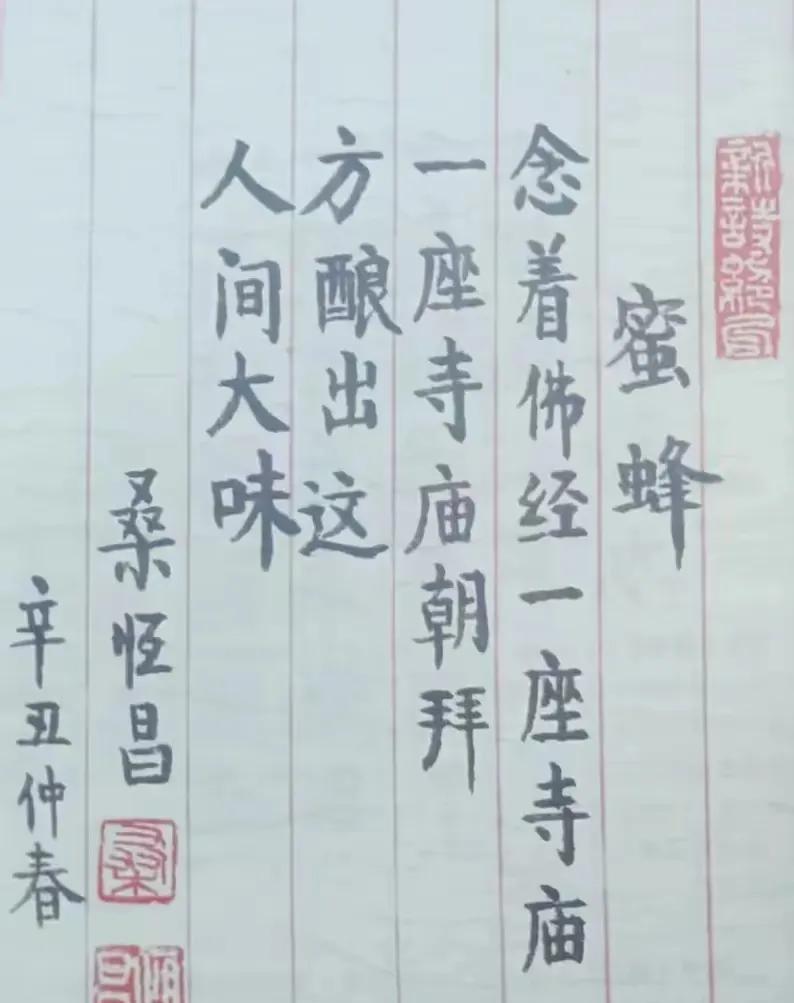 蜜蜂
念着佛经一座寺庙
一座寺庙朝拜
方酿出这
人间大味
桑恒昌
辛丑仲春
桑